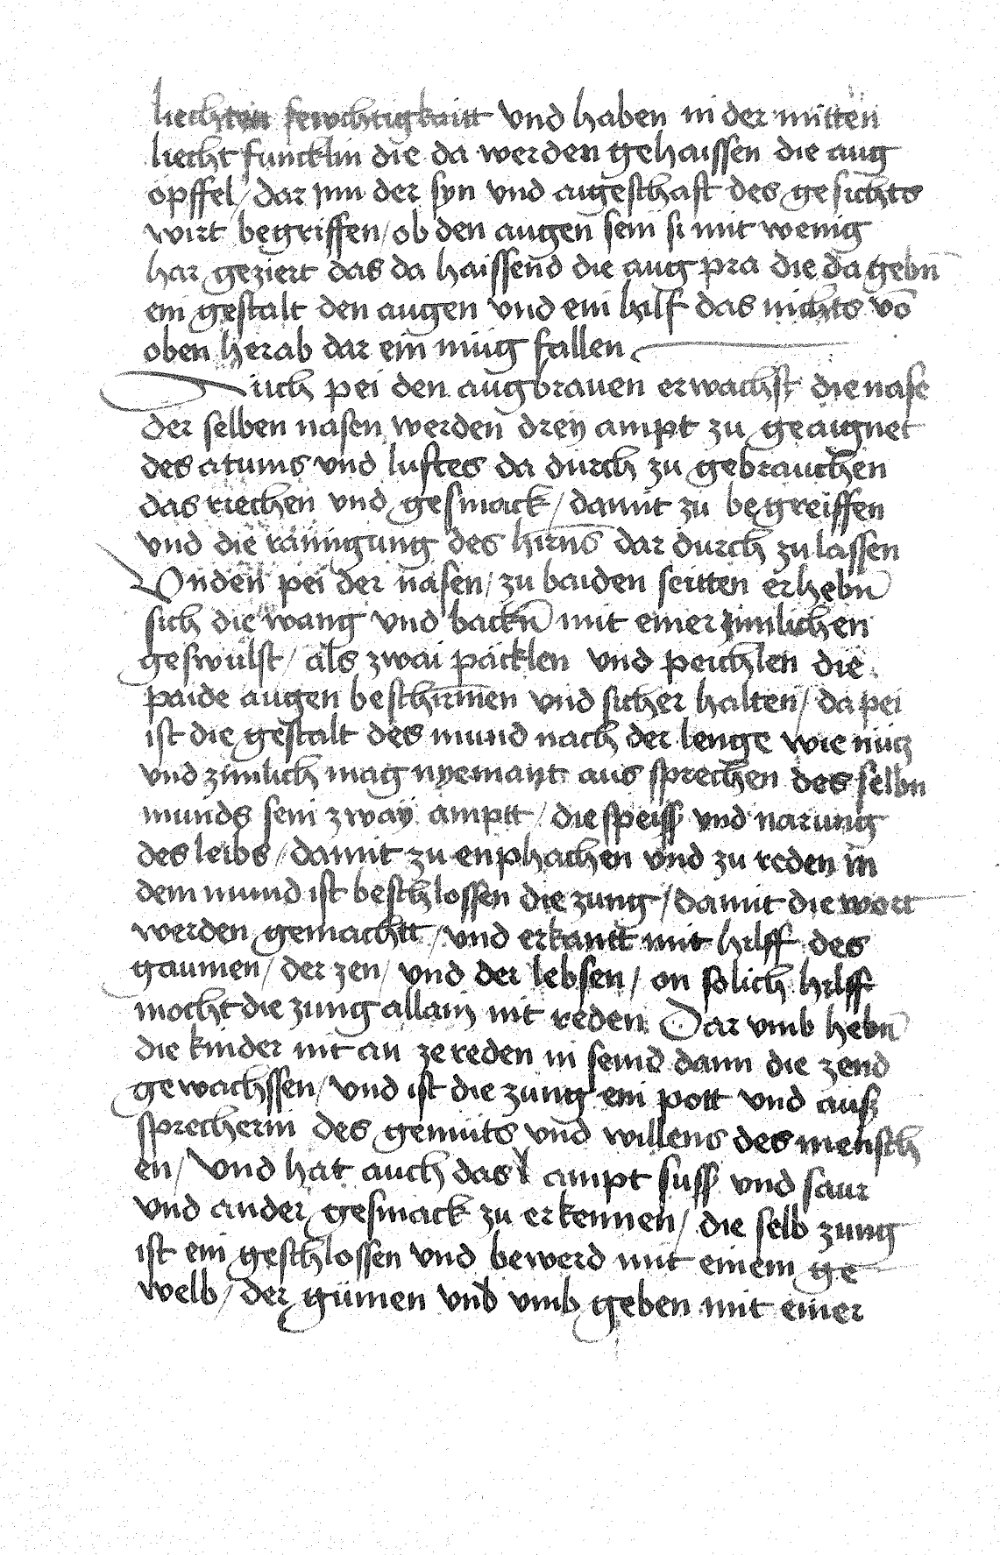 liechten fewchtigkaitt vnd haben in der mitten
liecht funcklin die da werden gehaissen die aug
opffel / dar jnn der syn vnd augeschaft des gesichts
wirt begriffen / ob den augen sein si mit wenig
har geziert das da haissend die augpra die da gebn̄
ein gestalt den augen vnd ein hilf das nichts vō
oben herab dar ein müg fallen
Auch pei den augbrauen erwachst die nase
der selben nasen werden drey ampt zu geaignet
des atums vnd luftes da durch zu gebrauchen
das riechen vnd gesmack / damit zu begreiffen
vnd die rainigung des hirns dar durch zu lassen
Vnden pei der nasen / zu baiden seitten erhebn̄
sich die wang vnd backn̄ mit einer zimlichen
geswulst / als zwai päcklen vnd peichlen die
paide augen beschirmen vnd sicher halten / da pei
ist die gestalt des mund nach der lenge wie nücz
vnd zimlich mag nyemant aus sprechen des selbn
munds sein zway amptt / die speiss vnd narung
des leibs / damit zu enphachen vnd zu reden in
dem mund ist beschlossen die zung / damit die wortt
werden gemachtt / vnd erkantt mit hilff des
gaumen / der zen / vnd der lebsen / on solich hilff
mocht die zung allain nit reden. Dar vmb hebn̄
die kinder nit an ze reden in seind dann die zend
gewachssen / vnd ist die zung ein pott vnd auß
sprecherin des gemüts vnd willens des mensch
en / Vnd hat auch das ampt suss vnd saur
vnd ander gesmack zu erkennen / die selb zung
ist ein geschlossen vnd bewerd mit einem ge
welb / der gümen vnd vmb geben mit einer